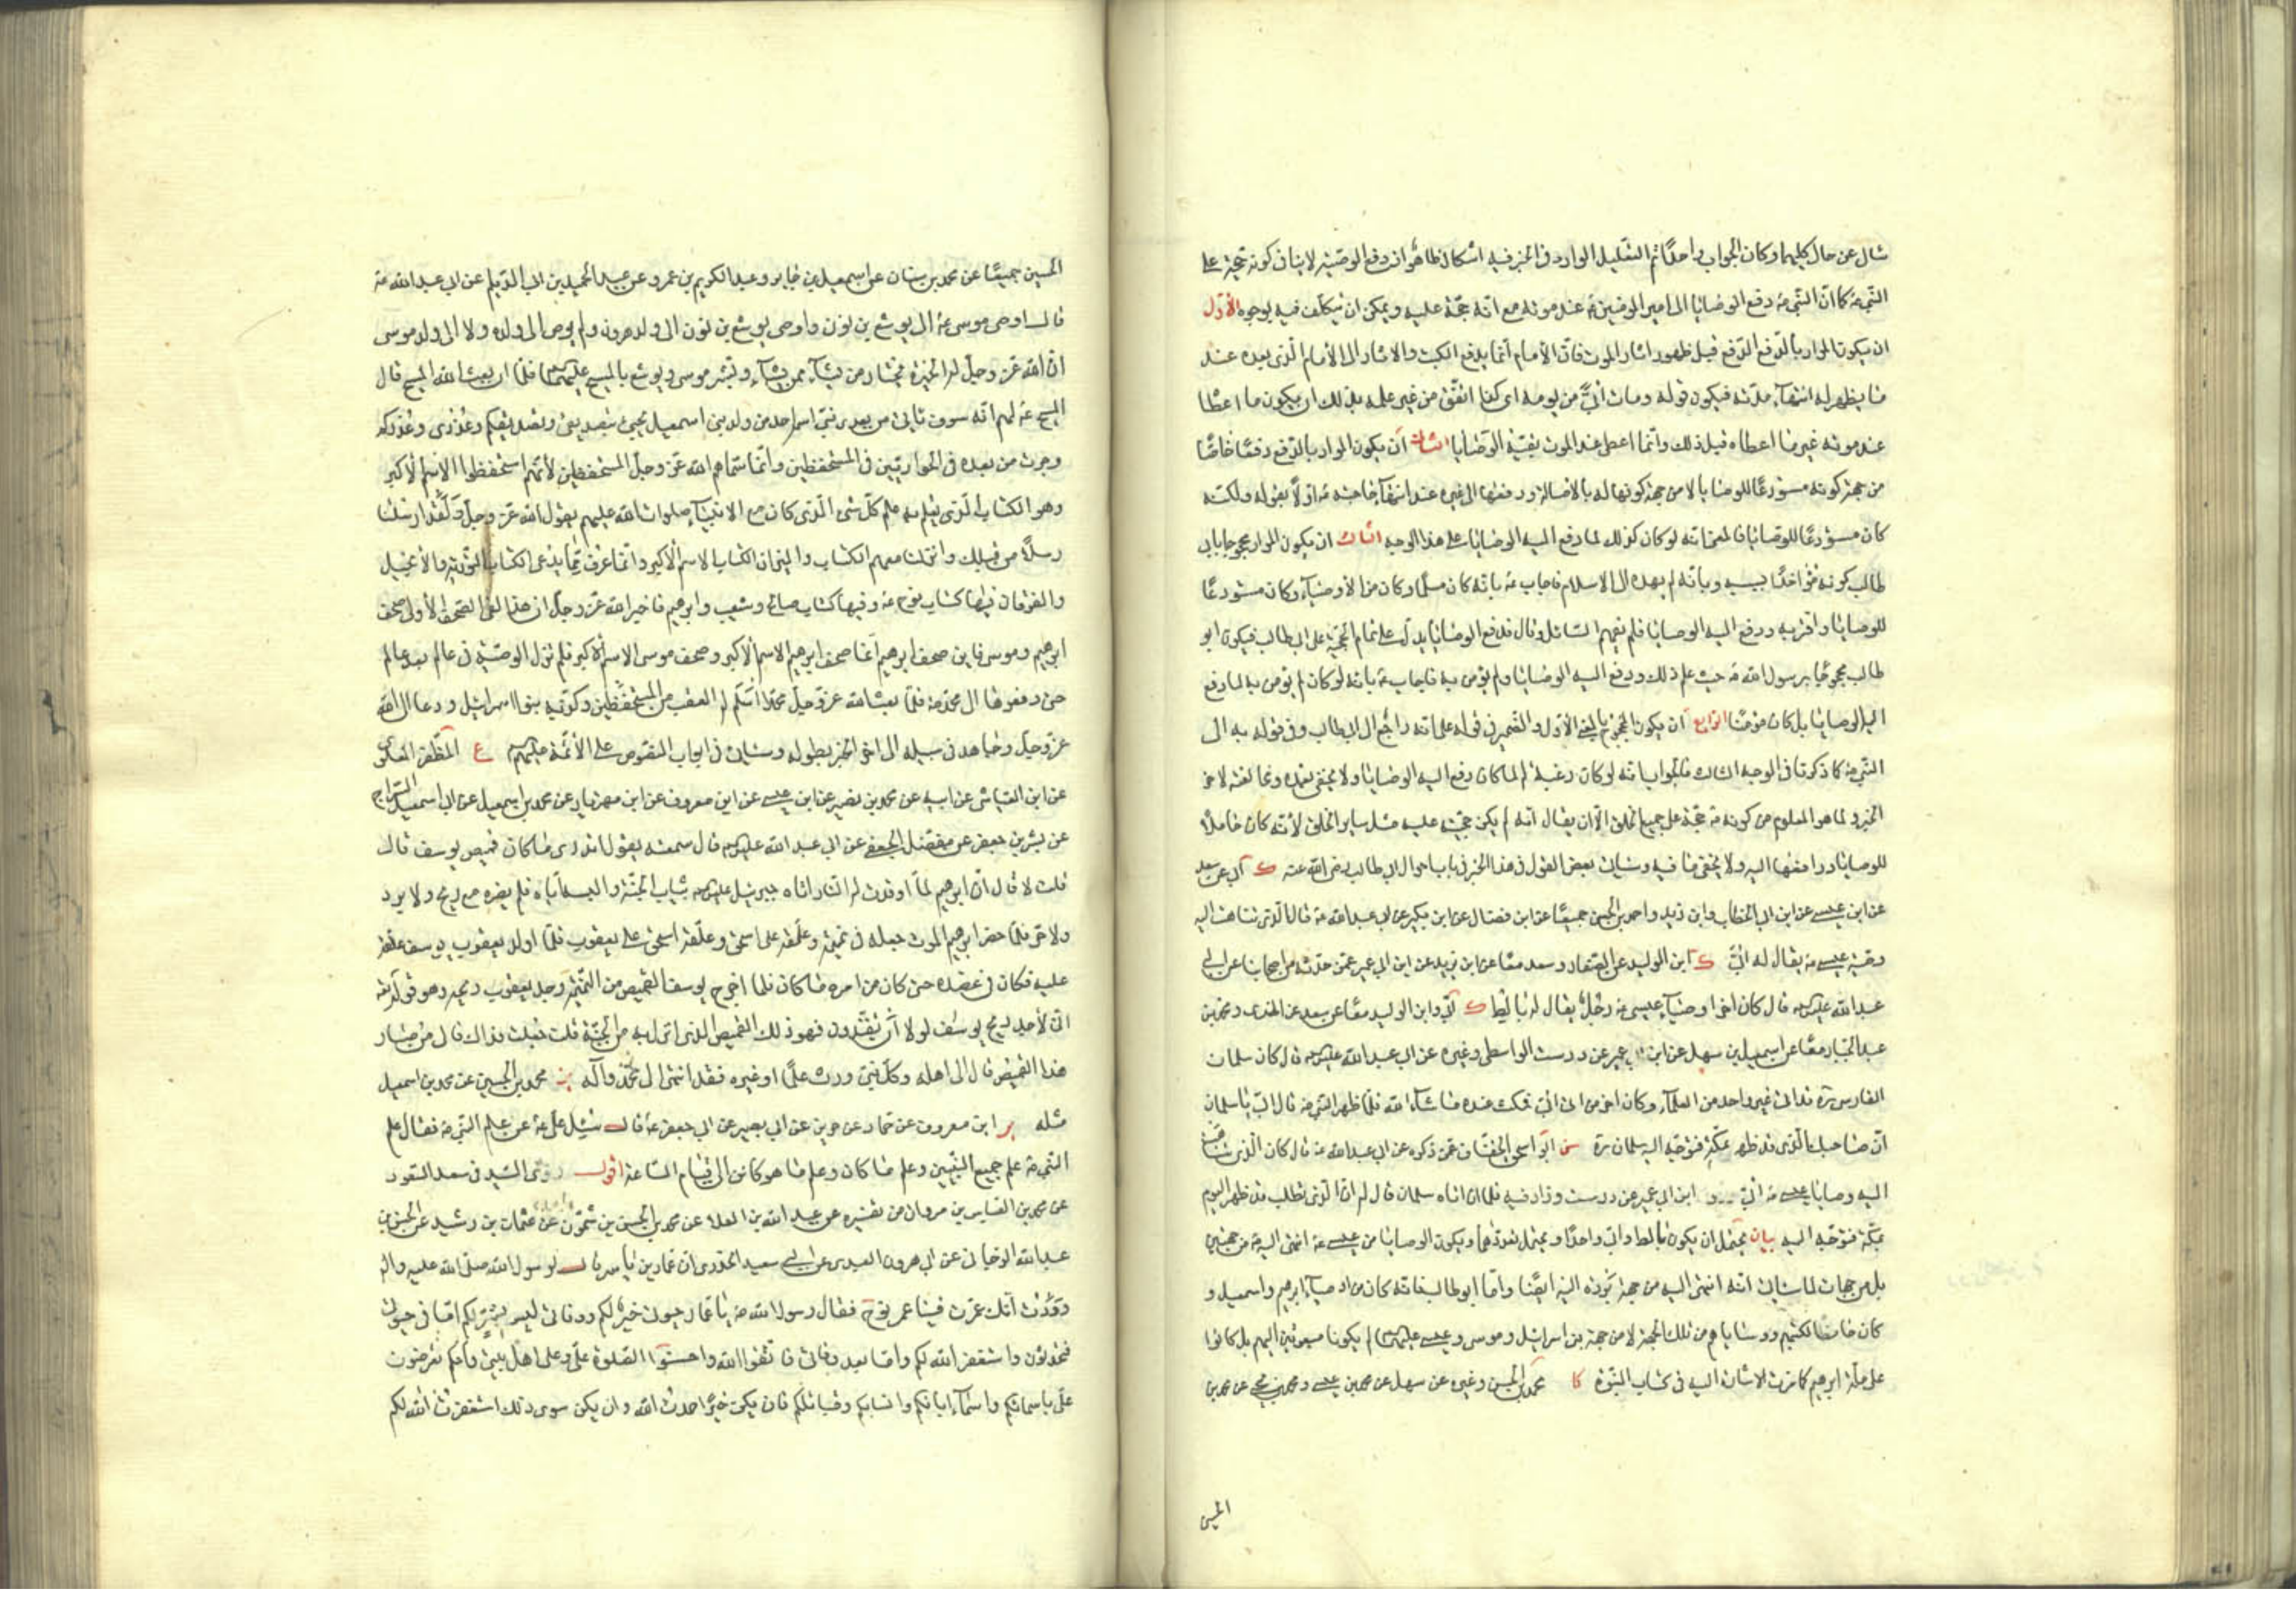 سأل عن حال كليهما وكان الجواب واحدا ثم التعليل الوارد في الخبر فيه اشكال ظاهر اذ دفع الوصية لا ينافي كونه حجة على
النبي ص كما ان النبي ص دفع الوصايا الى امير المؤمنين ع عند موته مع انه حجة عليه ويمكن ان يتكلف فيه بوجوه الاول
ان يكون المراد بالدفع الدفع قبل ظهور اثار الموت فان الامام انما يدفع الكتب والاثار الى الامام الذي بعده عند
ما يظهر له انتهاء مدته فيكون قوله ومات ابي من يومه اي كذا اتفق من غير علمه بذلك او يكون ما اعطا
عند موته غير ما اعطاه قبل ذلك وانما اعطى عند الموت بقية الوصايا الثاني ان يكون المراد بالدفع دفعا خاصا
من جهة كونه مستودعا للوصايا لا من جهة كونها له بالاصالة ودفعها الى غيره عند انتهاء حاجته ثم اولا بقوله ولكنه
كان مستودعا للوصايا فالمعنى انه لو كان كذلك لما دفع اليه الوصايا على هذا الوجه الثالث ان يكون المراد محجوجا بابي
طالب كونه مؤاخذا بسببه وبانه لم يهده الى الاسلام فاجاب ع بانه كان مسلما وكان من الاوصياء وكان مستودعا
للوصايا واقر به ودفع اليه الوصايا فلم يفهم السائل وقال فدفع الوصايا يدل على تمام الحجة على ابي طالب فيكون ابو
طالب محجوجا برسول الله ص حيث علم ذلك ودفع اليه الوصايا ولم يؤمن به فاجاب ع بانه لو كان لم يؤمن به لما دفع
اليه الوصايا بل كان مؤمنا الرابع ان يكون المحجوج بالمعنى الاول والضمير في قوله على انه راجع الى ابي طالب وفي قوله به الى
النبي ص كما ذكرنا في الوجه الثالث فالجواب انه لو كان رعية له لما كان دفع اليه الوصايا ولا يخفى بعده ومخالفته لاخر
الخبر ولما هو المعلوم من كونه ص حجة على جميع الخلق الا ان يقال انه لم يكن حجيته عليه مثل ساير الخلق لانه كان حاملا
للوصايا ودافعها اليه ولا يخفى ما فيه وسيأتي بعض القول في هذا الخبر في باب احوال ابي طالب رضي الله عنه ك ابي عن سعد
عن ابن عيسى عن ابن ابي الخطاب وابن يزيد واحمد بن الحسن جميعا عن ابن فضال عن ابن بكير عن ابي عبد الله ع قال الذي تناهت اليه
وصية عيسى ع يقال له ابي ك ابن الوليد عن الصفار وسعد معا عن ابن يزيد عن ابن ابي عمير عمن حدثه من اصحابنا عن ابي
عبد الله عليه السلام قال كان اخر اوصياء عيسى ع رجل يقال له بالط ك ابي وابن الوليد معا عن سعد عن النهدي ومحمد بن
عبد الجبار معا عن اسمعيل بن سهل عن ابن ابي عمير عن درست الواسطي وغيره عن ابي عبد الله عليه السلام قال كان سلمان
الفارسي ره قد اتى غير واحد من العلماء وكان اخر من اتى ابي فمكث عنده ما شاء الله فلما ظهر النبي ص قال ابي يا سلمان
ان صاحبك الذي قد ظهر بمكة فتوجه اليه سلمان ره سن ابو اسحق الخفاف عمن ذكره عن ابي عبد الله ع قال كان الذي تناهت
اليه وصايا عيسى ع ابي ابن ابي عمير عن درست وزاد فيه فلما ان اتاه سلمان قال له ان الذي تطلب قد ظهر اليوم
بمكة فتوجه اليه بيان يحتمل ان يكون بالط وابي واحدا ويحتمل تعددهما ويكون الوصايا من عيسى ع انتهى اليه من جهتين
بل من جهات لما سيأتي انه انتهى اليه من جهة بردة اليه ايضا واما ابو طالب فانه كان من اوصياء ابرهيم واسمعيل و
كان حافظا لكتبهم ووصاياهم من تلك الجهة لا من جهة بني اسرائيل وموسى وعيسى عليهم السلام لم يكونا مبعوثين اليهم بل كانوا
على ملة ابرهيم كما مرت الاشارة اليه في كتاب النبوة كا محمد بن الحسن وغيره عن سهل عن محمد بن عيسى ومحمد بن يحيى عن محمد بن
الحسين
الحسين جميعا عن محمد بن سنان عن اسمعيل بن جابر وعبد الكريم بن عمرو عن عبد الحميد بن ابي الديلم عن ابي عبد الله ع
قال اوصى موسى ع الى يوشع بن نون واوصى يوشع بن نون الى ولد هرون ولم يوص الى ولده ولا الى ولد موسى
ان الله عز وجل له الخيرة يختار من يشاء ممن يشاء وبشر موسى ويوشع بالمسيح عليهم السلام فلما ان بعث الله المسيح قال
المسيح ع لهم انه سوف ياتي من بعدي نبي اسمه احمد من ولد اسمعيل يجيء بتصديقي وتصديقكم وعذري وعذركم
وجرت من بعده في الحواريين في المستحفظين وانما سماهم الله عز وجل المستحفظين لانهم استحفظوا الاسم الاكبر
وهو الكتاب الذي يعلم به علم كل شيء الذي كان مع الانبياء صلوات الله عليهم يقول الله عز وجل ولقد ارسلنا
رسلا من قبلك وانزلنا معهم الكتاب والميزان الكتاب الاسم الاكبر وانما عرف مما يدعى الكتاب التورية والانجيل
والفرقان فيها كتاب نوح ع وفيها كتاب صالح وشعيب وابرهيم فاخبر الله عز وجل ان هذا لفي الصحف الاولى صحف
ابرهيم وموسى فاين صحف ابرهيم انما صحف ابرهيم الاسم الاكبر وصحف موسى الاسم الاكبر فلم تزل الوصية في عالم بعد عالم
حتى دفعوها الى محمد ص فلما بعث الله عز وجل محمدا اسلم له العقب من المستحفظين وكذبه بنو اسرائيل ودعا الى الله
عز وجل وجاهد في سبيله الى اخر الخبر بطوله وسيأتي في ابواب النصوص على الائمة عليهم السلام ع المظفر العلوي
عن ابن العياشي عن ابيه عن محمد بن نصير عن ابن عيسى عن ابن معروف عن ابن مهزيار عن محمد بن اسمعيل عن ابي اسمعيل السراج
عن بشر بن جعفر عن مفضل الجعفي عن ابي عبد الله عليه السلام قال سمعته يقول اتدري ما كان قميص يوسف قال
قلت لا قال ان ابرهيم لما اوقدت له النار اتاه جبرئيل عليه السلام بثياب الجنة والبسه اياه فلم يضره معه ريح ولا برد
ولا حر فلما حضر ابرهيم الموت جعله في تميمة وعلقه على اسحق وعلقه اسحق على يعقوب فلما ولد يعقوب يوسف علقه
عليه فكان في عضده حتى كان من امره ما كان فلما اخرج يوسف القميص من التميمة وجد يعقوب ريحه وهو قوله تعالى
اني لاجد ريح يوسف لولا ان تفندون فهو ذلك القميص الذي انزل به من الجنة قلت جعلت فداك فالى من صار
هذا القميص قال الى اهله وكل نبي ورث علما او غيره فقد انتهى الى محمد وآله محمد بن الحسين عن محمد بن اسمعيل
مثله ير ابن معروف عن حماد عن حريز عن ابي بصير عن ابي جعفر ع قال سئل علي ع عن علم النبي ص فقال علم
النبي ص علم جميع النبيين وعلم ما كان وعلم ما هو كائن الى قيام الساعة اقول روى السيد في سعد السعود
عن محمد بن العباس بن مروان من تفسيره عن عبد الله بن العلا عن محمد بن الحسن بن شمون عن عثمان بن رشيد عن الحسن بن
عبد الله الارجاني عن ابي هرون العبدي عن ابي سعيد الخدري ان عمار بن ياسر قال لرسول الله صلى الله عليه واله
وددت انك عمرت فينا عمر نوح فقال رسول الله ص يا عمار حيوتي خير لكم ووفاتي ليس بشر لكم اما في حيوتي
فتحدثون واستغفر الله لكم واما بعد وفاتي فاتقوا الله واحسنوا الصلوة علي وعلى اهل بيتي وانكم تعرضون
علي باسمائكم واسماء ابائكم وانسابكم وقبائلكم فان يكن خيرا حمدت الله وان يكن سوى ذلك استغفرت الله لكم